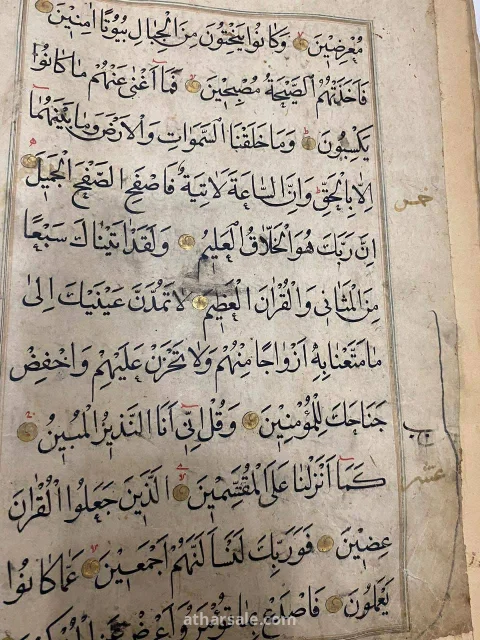 مُعْرِضِينَ وَكَانُوا يَنْحِتُونَ مِنَ الْجِبَالِ بُيُوتًا اٰمِنِينَ
فَاَخَذَتْهُمُ الصَّيْحَةُ مُصْبِحِينَ فَمَا اَغْنٰى عَنْهُمْ مَا كَانُوا
يَكْسِبُونَ وَمَا خَلَقْنَا السَّمٰوَاتِ وَالْاَرْضَ وَمَا بَيْنَهُمَا
اِلَّا بِالْحَقِّ وَاِنَّ السَّاعَةَ لَاٰتِيَةٌ فَاصْفَحِ الصَّفْحَ الْجَمِيلَ
اِنَّ رَبَّكَ هُوَ الْخَلَّاقُ الْعَلِيمُ وَلَقَدْ اٰتَيْنَاكَ سَبْعًا
مِنَ الْمَثَانِى وَالْقُرْاٰنَ الْعَظِيمَ لَا تَمُدَّنَّ عَيْنَيْكَ اِلٰى
مَا مَتَّعْنَا بِهِ اَزْوَاجًا مِنْهُمْ وَلَا تَحْزَنْ عَلَيْهِمْ وَاخْفِضْ
جَنَاحَكَ لِلْمُؤْمِنِينَ وَقُلْ اِنِّى اَنَا النَّذِيرُ الْمُبِينُ
كَمَا اَنْزَلْنَا عَلَى الْمُقْتَسِمِينَ الَّذِينَ جَعَلُوا الْقُرْاٰنَ
عِضِينَ فَوَرَبِّكَ لَنَسْـَٔلَنَّهُمْ اَجْمَعِينَ عَمَّا كَانُوا
يَعْمَلُونَ فَاصْدَعْ بِمَا تُؤْمَرُ وَاَعْرِضْ عَنِ الْمُشْرِكِينَ
عشر
atharsale.com